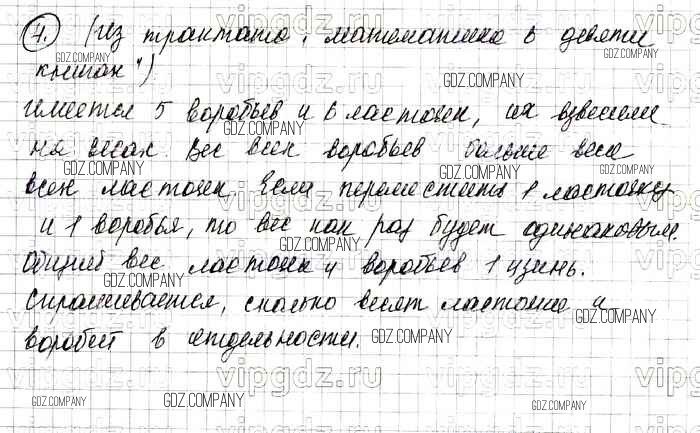 7. (из трактата „математика в девяти
книгах")
имеется 5 воробьев и 6 ласточек, их взвесили
на весах. Вес всех воробьев больше веса
всех ласточек. Если переместить 1 ласточку
и 1 воробья, то вес как раз будет одинаковым.
Общий вес ласточек и воробьев 1 цзинь.
Спрашивается, сколько весят ласточка и
воробей в отдельности.
vipgdz.ru
GDZ.COMPANY